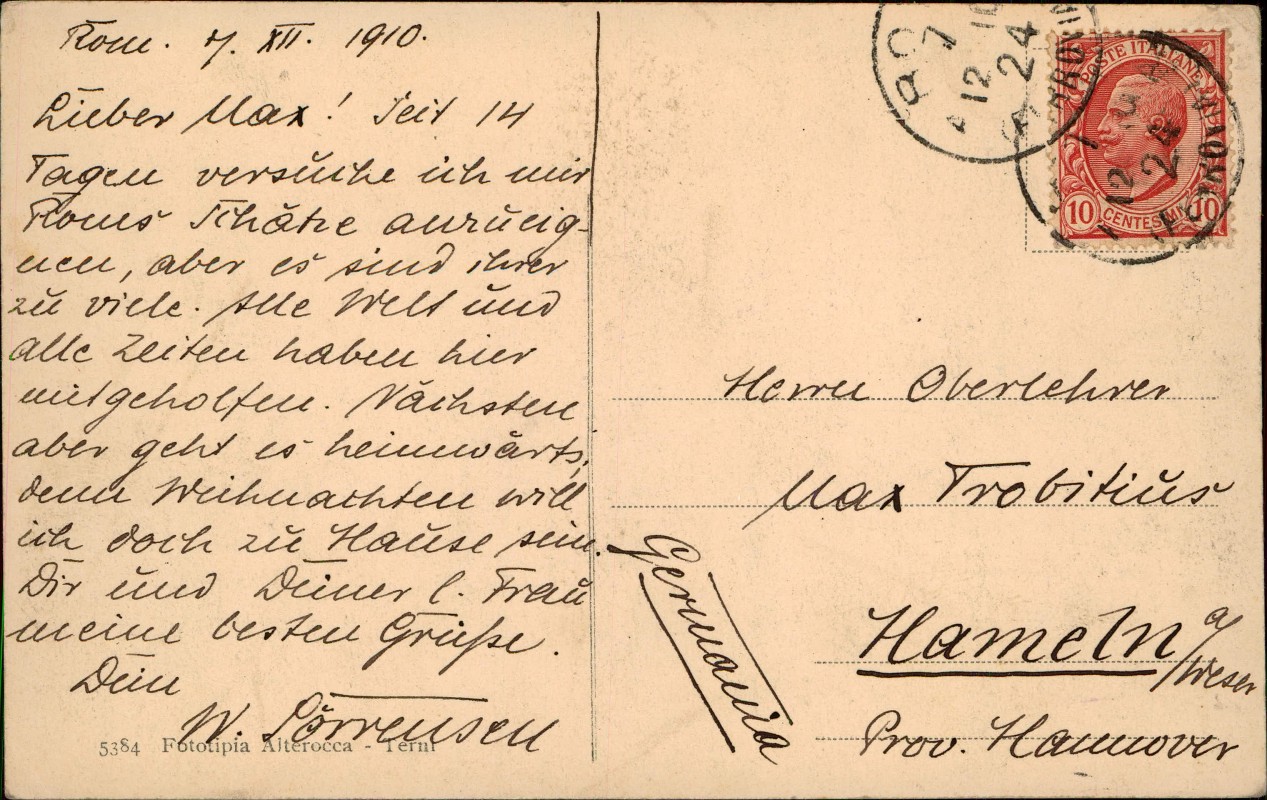 Rom. 7. XII. 1910.
Lieber Max! Seit 14
Tagen versuche ich mir
Roms Schätze anzueig-
nen, aber es sind ihrer
zu viele. Alle Welt und
alle Zeiten haben hier
mitgeholfen. Nächsten
aber geht es heimwärts,
denn Weihnachten will
ich doch zu Hause sein.
Dir und Deiner l. Frau
meine besten Grüße.
Dein
W. Sörrensen
5384 Fototipia Alterocca - Terni
7 12 10
24
FERROVIA
POSTE ITALIANE
7 12 10
24
FERROVIA
10 CENTESIMI 10
Herrn Oberlehrer
Max Trobitius
Germania
Hameln a/Weser
Prov. Hannover